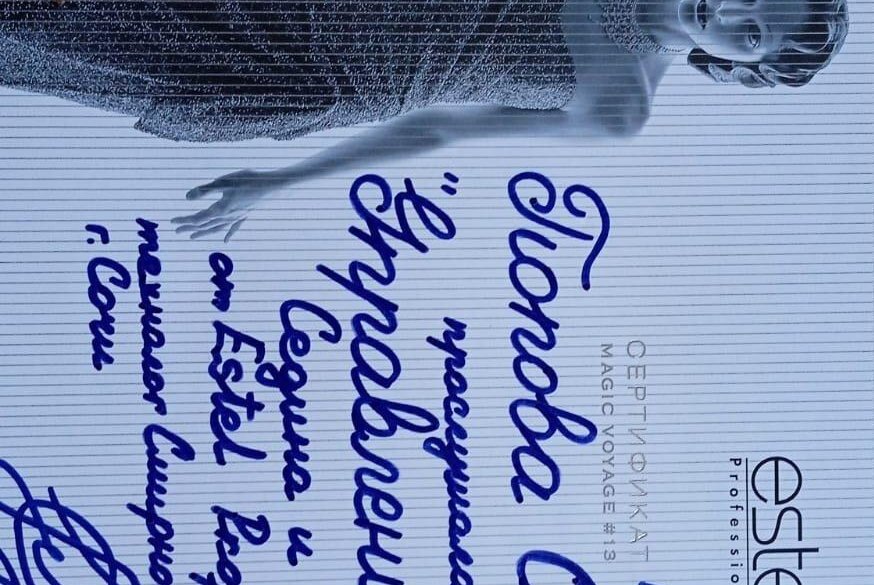 este
Professio
СЕРТИФИКАТ
MAGIC VOYAGE #13
Попова С
прослушала
"Управлени
Седина и
от Estel Pro
технолог Смирно
г. Сочи